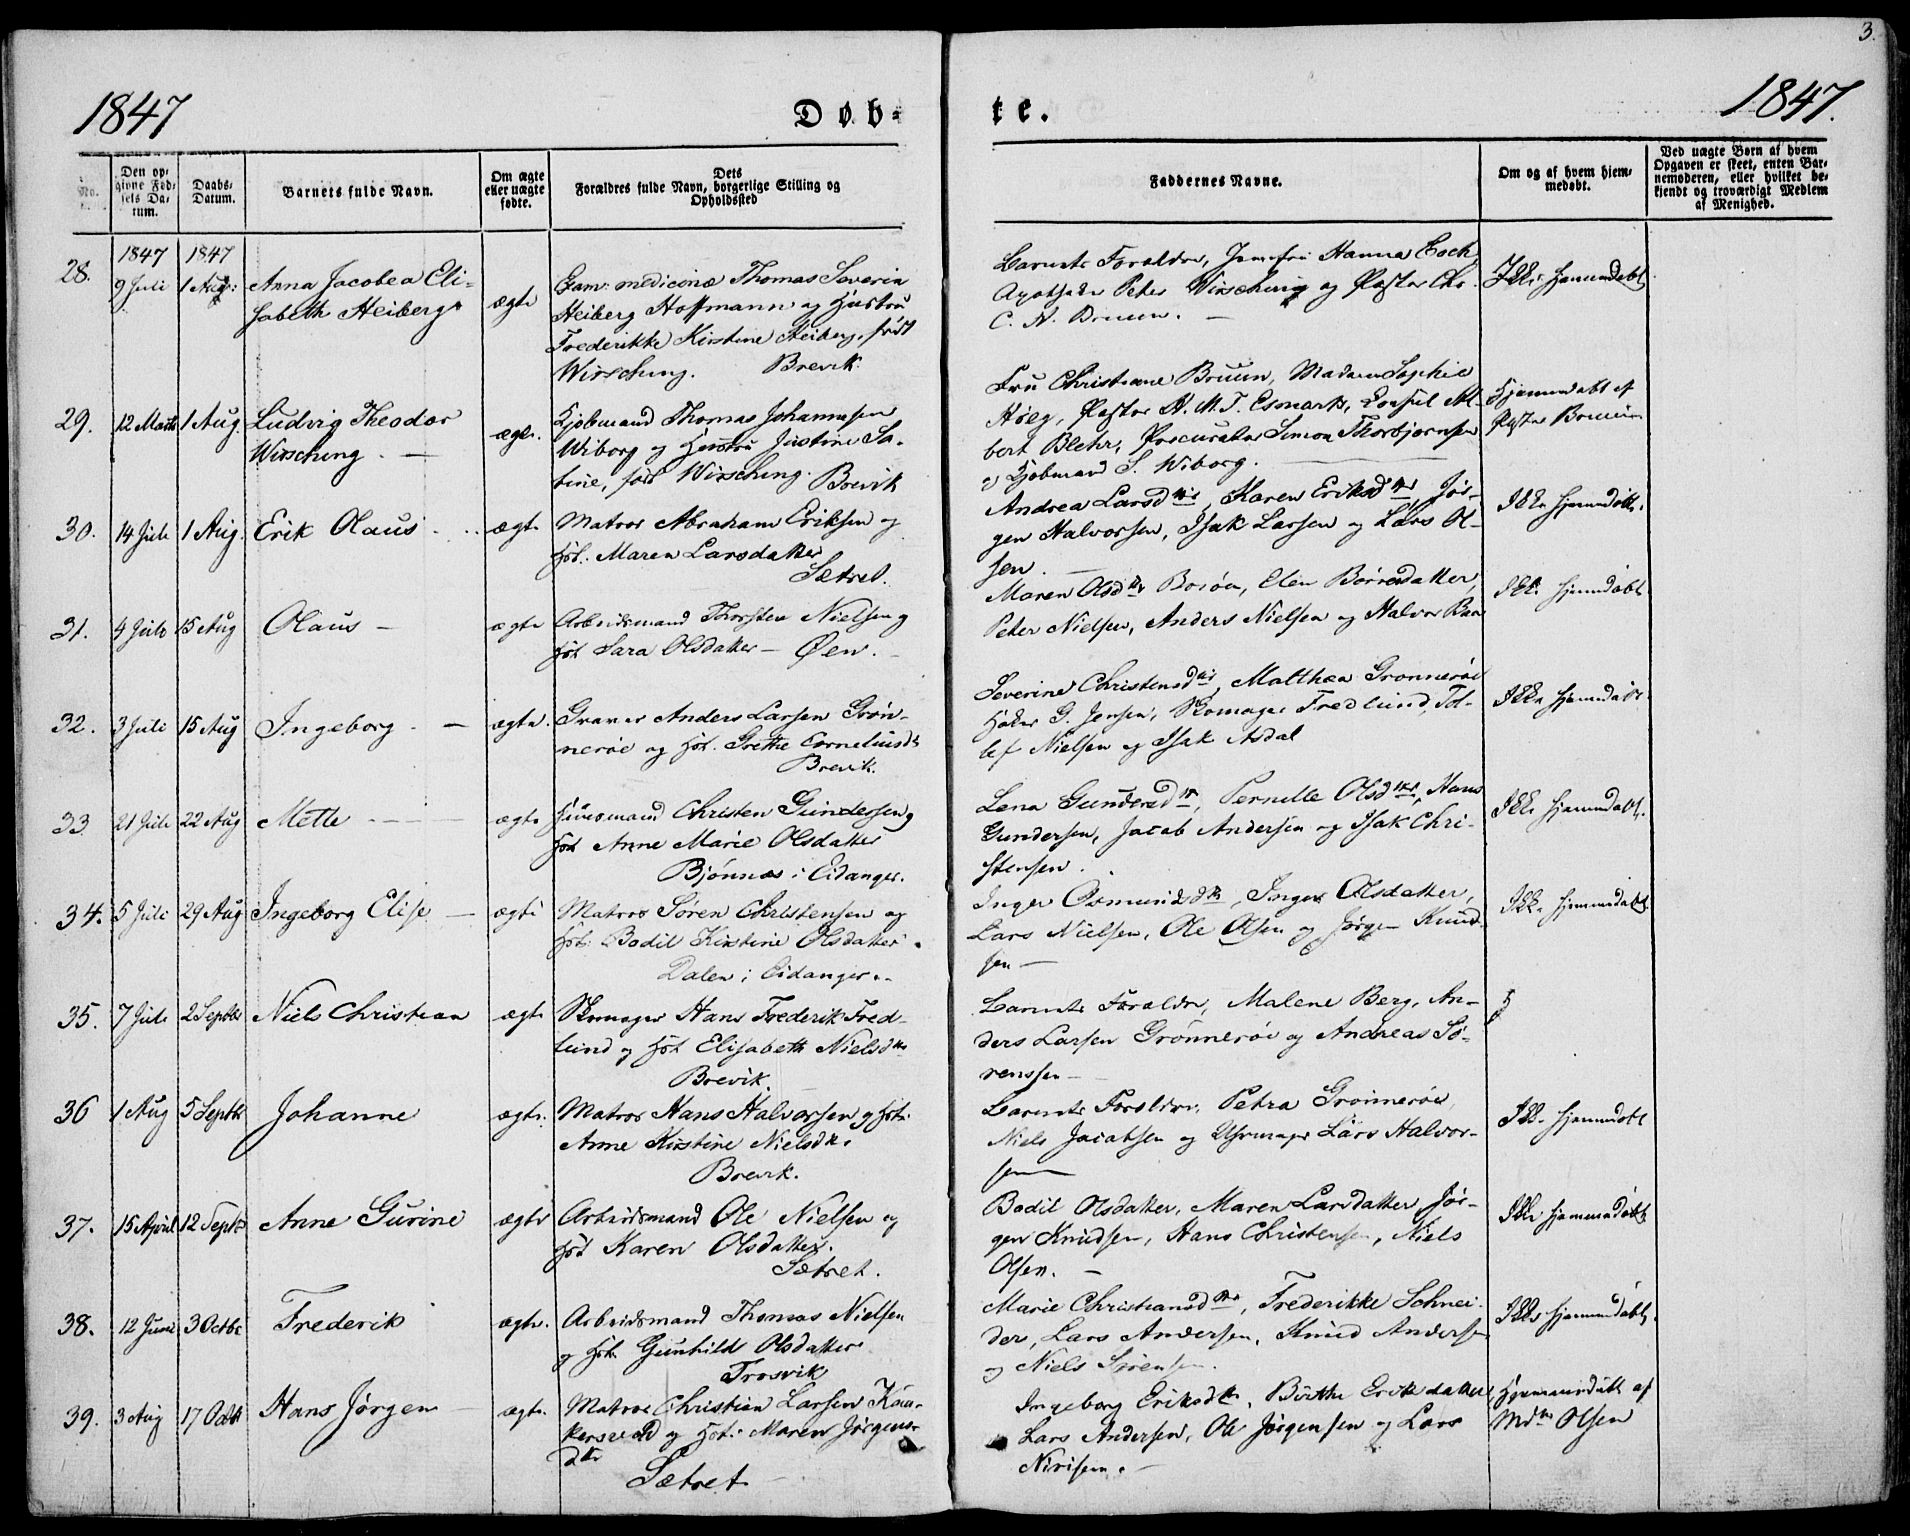 3.
1847
Døb-
te.
1847.
No.
Den opgivne Fødsels Datum.
Daabs-Datum.
Barnets fulde Navn.
Om ægte eller uægte fødte.
Dets Forældres fulde Navn, borgerlige Stilling og Opholdsted
Faddernes Navne.
Om og af hvem hjemmedøbt.
Ved uægte Børn af hvem Opgaven er skeet, enten Barnemoderen, eller hvilket bekjendt og troværdigt Medlem af Menighed.
1847 1847
28. 9 Juli 1 Aug: Anna Jacobea Eli-
sabeth Heiberg
ægte
Exam: medicinæ Thomas Severin
Heiberg Hoffmann og Hustru
Frederikke Kirstine Heiberg, født
Wirsching. Brevik
Barnets Forældre, Jomfru Hanna
Apotheker Peter Wirsching og Pastor Chr.
C. A. Bruun.
Ikke hjemmedøbt
29. 12 Marts 1 Aug. Ludvig Theodor
Wirsching
ægte.
Kjøbmand Thomas Johannesen
Wiborg og Hustru Justine Sa-
bine, født Wirsching. Brevik
Fru Christiane Bruun, Madam Sophie
Høeg, Pastor H. M. T. Esmark, Consul Al-
bert Blehr, Procurator Simon Thorbjørnsen
og Kjøbmand S. Wiborg.
Hjemmedøbt af
Pastor Bruun
30. 14 Juli 1 Aug. Erik Olaus
ægte
Matros Abraham Eriksen og
Hst. Maren Larsdatter
Sætret.
Andrea Larsdtr, Karen Eriksdtr, Jør-
gen Halvorsen, Isak Larsen og Lars Ol-
sen.
Ikke hjemmedøbt.
31. 4 Juli 15 Aug Olaus
ægte
Arbeidsmand Thorsten Nielsen og
Hst Sara Olsdatter - Øen.
Maren Olsdtr Borøen, Elen Børresdatter,
Peter Nielsen, Anders Nielsen og Halvor
Ikke hjemmedøbt
32. 3 Juli 15 Aug Ingeborg
ægte.
Graver Anders Larsen Grøn-
nerøe og Hst. Grethe Corneliusdt
Brevik.
Severine Christensdtr, Matthea Grønnerøe
G. Jensen, Skomager Fredlund, Tol-
lef Nielsen og Isak Asdal
Ikke hjemmedøbt
33 21 Juli 22 Aug Mette
ægte
Huusmand Christen Gundersen og
Hst Anne Marie Olsdatter
Bjønnes i Eidanger.
Lena Gundersdtr, Pernille Olsdtr, Hans
Gundersen, Jacob Andersen og Isak Chri-
stensen.
Ikke hjemmedøbt.
34. 5 Juli 29 Aug Ingeborg Elise
ægte
Matros Søren Christensen og
Hst. Bodil Kirstine Olsdatter
Dalen i Eidanger.
Inger Osmundsdtr, Inger Olsdatter,
Lars Nielsen, Ole Olsen og Jørgen Knud-
sen
Ikke hjemmedøbt
35. 7 Juli 2 Septbr Niels Christian
ægte
Skomager Hans Frederik Fred-
lund og Hst Elisabeth Nielsdtr
Brevik.
Barnets Forældre, Malene Berg, An-
ders Larsen Grønnerøe og Andreas Sø-
renssen
36 1 Aug 5 Septbr Johanne
ægte.
Matros Hans Halvorsen og Hst.
Anne Kirstine Nielsdtr.
Brevik.
Barnets Forældre, Petra Grønnerøe,
Niels Jacobsen og Uhrmager Lars Halvor-
sen
Ikke hjemmedøbt
37. 15 April 12 Septbr Anne Gurine
ægte
Arbeidsmand Ole Nielsen og
Hst Karen Olsdatter.
Sætret.
Bodil Olsdatter, Maren Larsdatter, Jør-
gen Knudsen, Hans Christensen, Niels
Olsen.
Ikke hjemmedøbt
38. 12 Juni 3 Octbr Frederik
ægte.
Arbeidsmand Thomas Nielsen
og Hst. Gunhild Olsdatter
Trosvik
Marie Christiansdtr, Frederikke Schnei-
der, Lars Andersen, Knud Andersen
og Niels Sørensen.
Ikke hjemmedøbt.
39. 3 Aug 17 Octbr Hans Jørgen
ægte.
Matros Christian Larsen
og Hst. Maren Jørgens-
dtr
Sætret
Ingeborg Eriksdtr, Birthe Eriksdatter
Lars Andersen, Ole Jørgensen og Lars
Hjemmedøbt af
Olsen